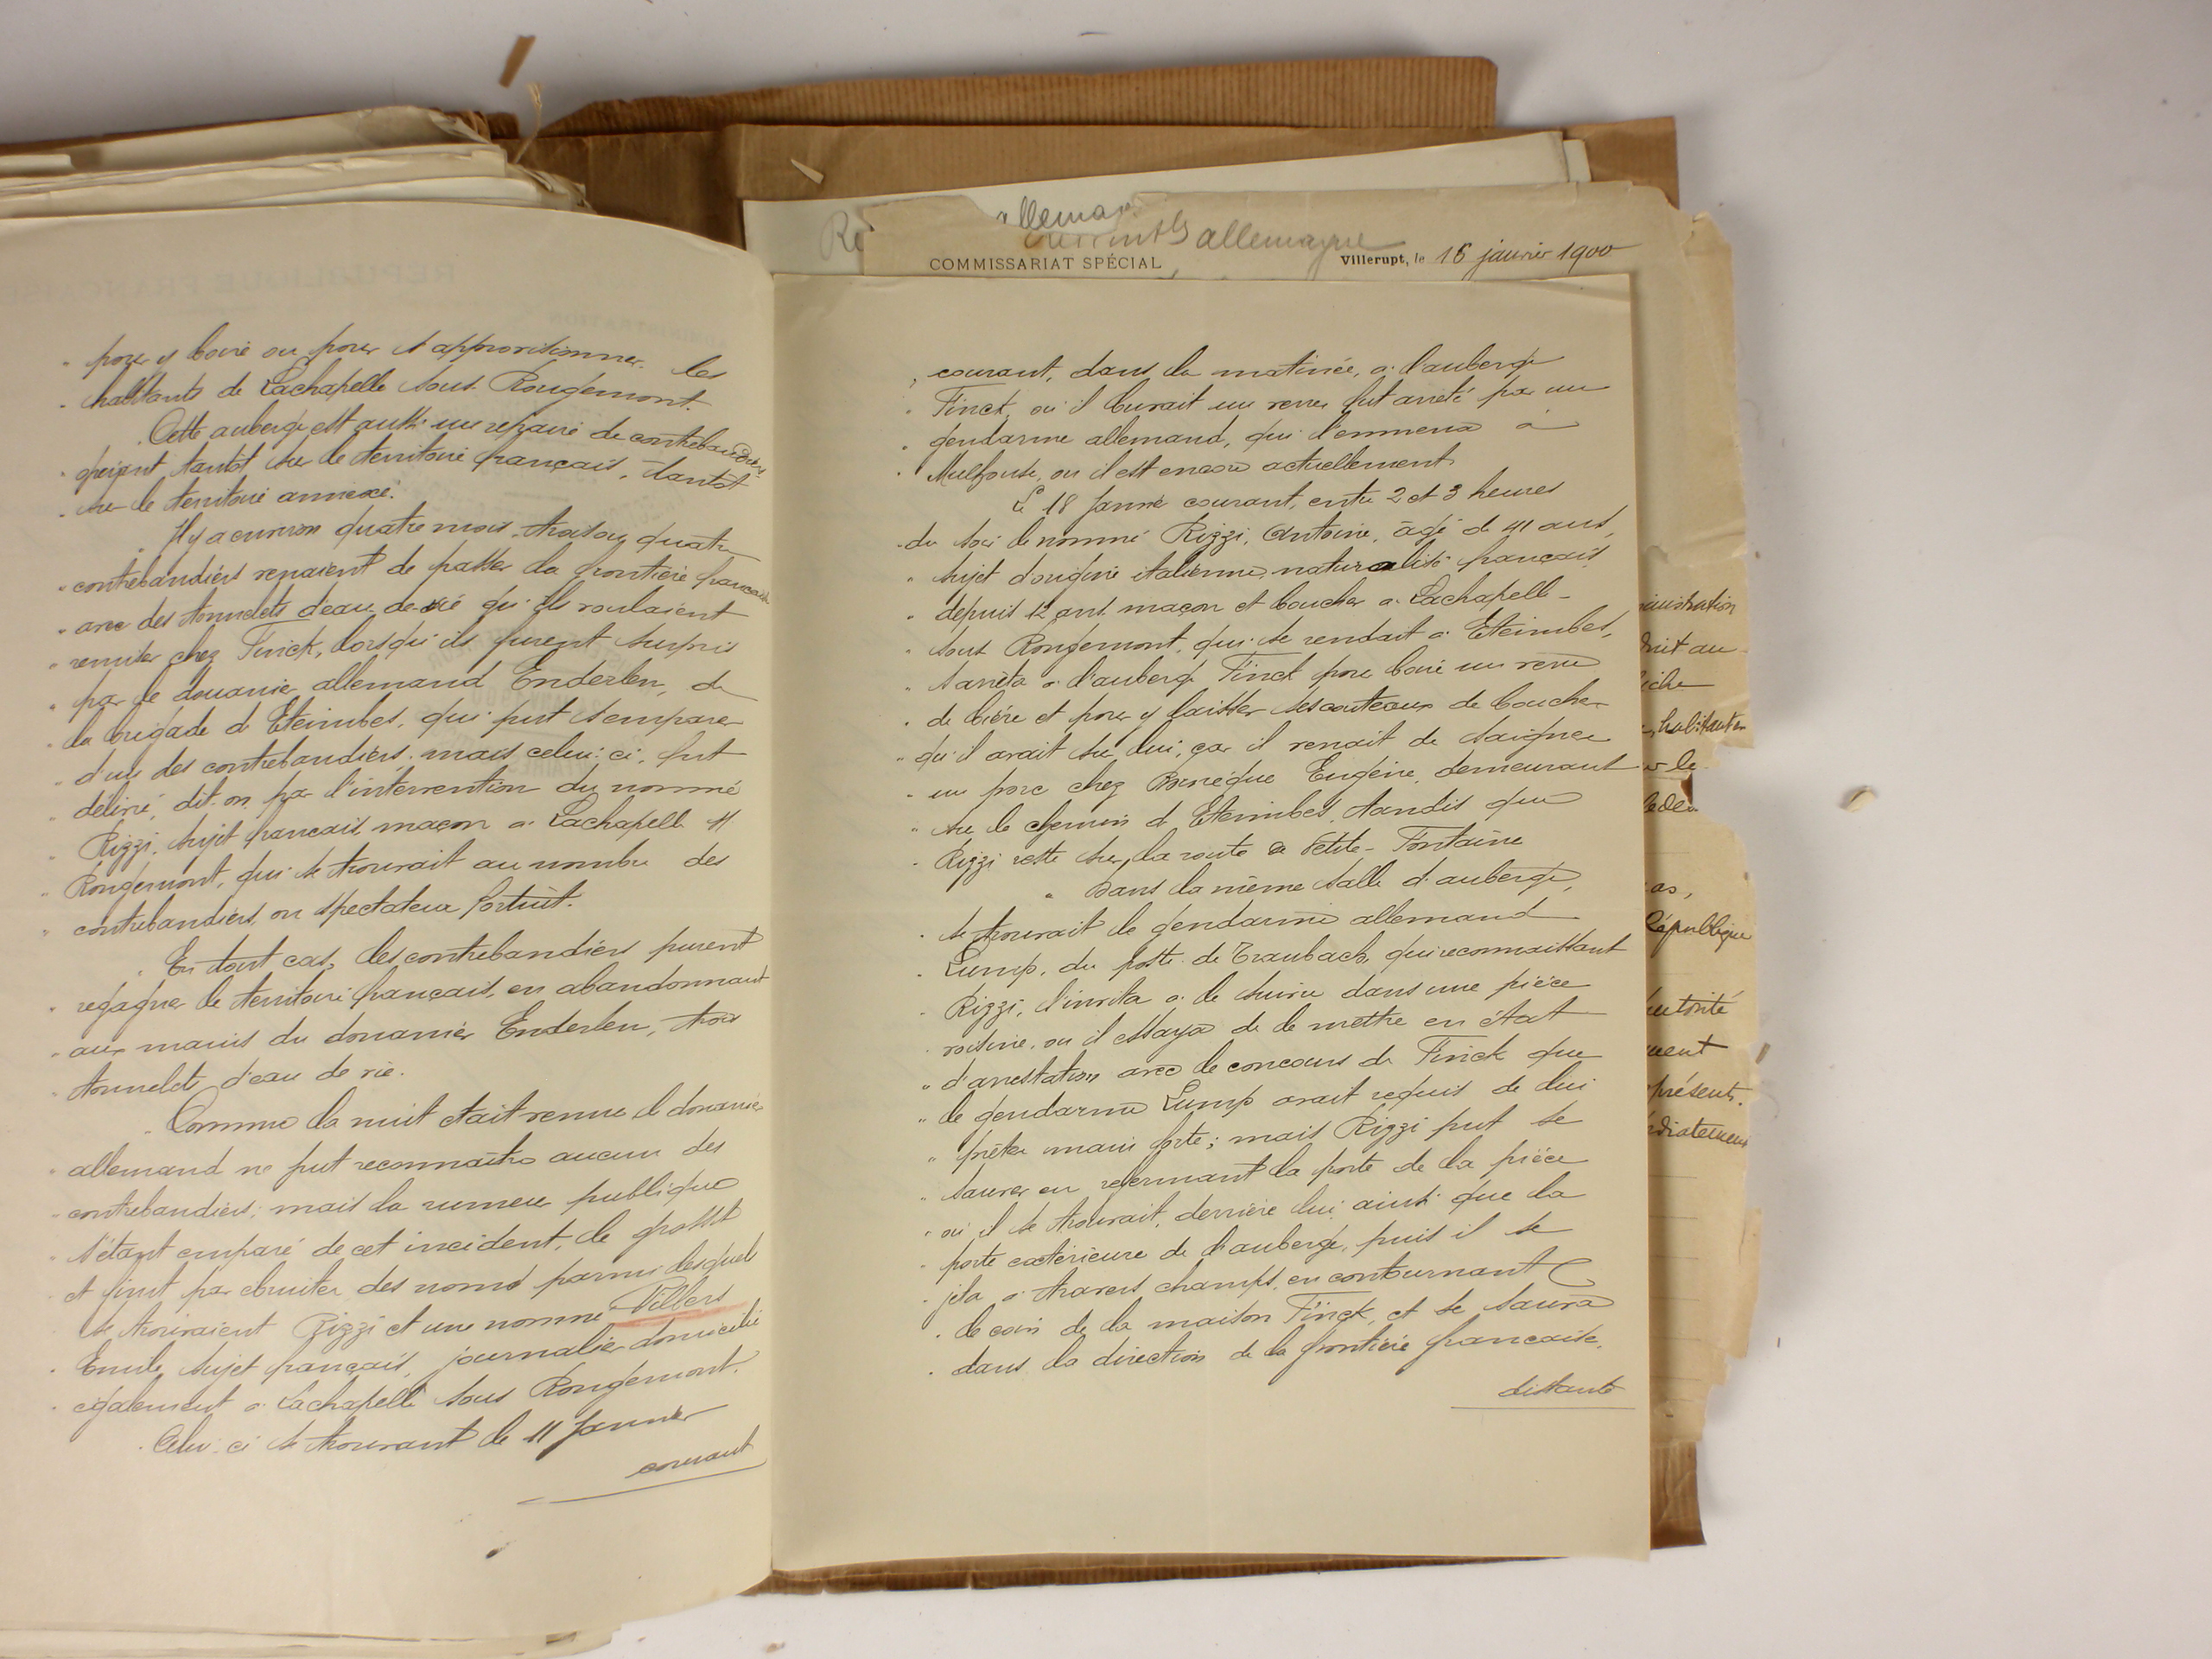 pour y boire ou pour s'approvisionner les
habitants de Lachapelle sous Rougemont.
Cette auberge est aussi un repaire de contrebandiers
opérant tantôt sur le territoire français, tantôt
sur le territoire annexé.
Il y a environ quatre mois, trois ou quatre
contrebandiers venaient de passer la frontière française
avec des tonnelets d'eau de vie qu'ils voulaient
remiser chez Finck, lorsqu'ils furent surpris
par le douanier allemand Enderlen, de
la brigade d'Eteimbes, qui put s'emparer
d'un des contrebandiers; mais celui-ci, fut
délivré, dit-on, par l'intervention du nommé
Rizzi, sujet français, maçon à Lachapelle s/
Rougemont, qui se trouvait au nombre des
contrebandiers, ou spectateur fortuit.
En tout cas, les contrebandiers purent
regagner le territoire français, en abandonnant
aux mains du douanier Enderlen, trois
tonnelets d'eau de vie.
Comme la nuit était venue le douanier
allemand ne put reconnaître aucun des
contrebandiers; mais la rumeur publique
s'étant emparé de cet incident, le grossit
et finit par ébruiter des noms parmi lesquels
se trouvaient Rizzi et un nommé
Emile, sujet français, journalier domicilié
également à Lachapelle sous Rougemont.
Celui-ci se trouvant le 11 Janvier
courant
allemagne
COMMISSARIAT SPÉCIAL
Villerupt, le 16 janvier 1900
courant, dans la matinée, à l'auberge
Finck, où il buvait un verre fut arrêté par un
gendarme allemand, qui l'emmena à
Mulhouse, où il est encore actuellement.
Le 18 Janvier courant, entre 2 et 3 heures
du soir le nommé Rizzi, Antoine, âgé de 41 ans,
sujet d'origine italienne, naturalisé français
depuis 12 ans, maçon et boucher à Lachapelle-
sous Rougemont, qui se rendait à Eteimbes,
s'arrêta à l'auberge Finck pour boire un verre
de bière et pour y laisser ses couteaux de boucher
qu'il avait sur lui, car il venait de saigner
un porc chez Eugène, demeurant
sur le chemin d'Eteimbes, tandis que
Rizzi reste sur la route de Petite-Fontaine
Dans la même salle d'auberge,
se trouvait le gendarme allemand
Lump, du poste de Traubach, qui reconnaissant
Rizzi, l'invita à le suivre dans une pièce
voisine, où il essaya de le mettre en état
d'arrestation avec le concours de Finck que
le gendarme Lump avait requis de lui
prêter main forte; mais Rizzi put se
sauver en refermant la porte de la pièce
où il se trouvait, derrière lui, ainsi que la
porte extérieure de l'auberge, puis il se
jeta à travers champs, en contournant
le coin de la maison Finck, et se sauva
dans la direction de la frontière française,
distante
habitants
République
présents.